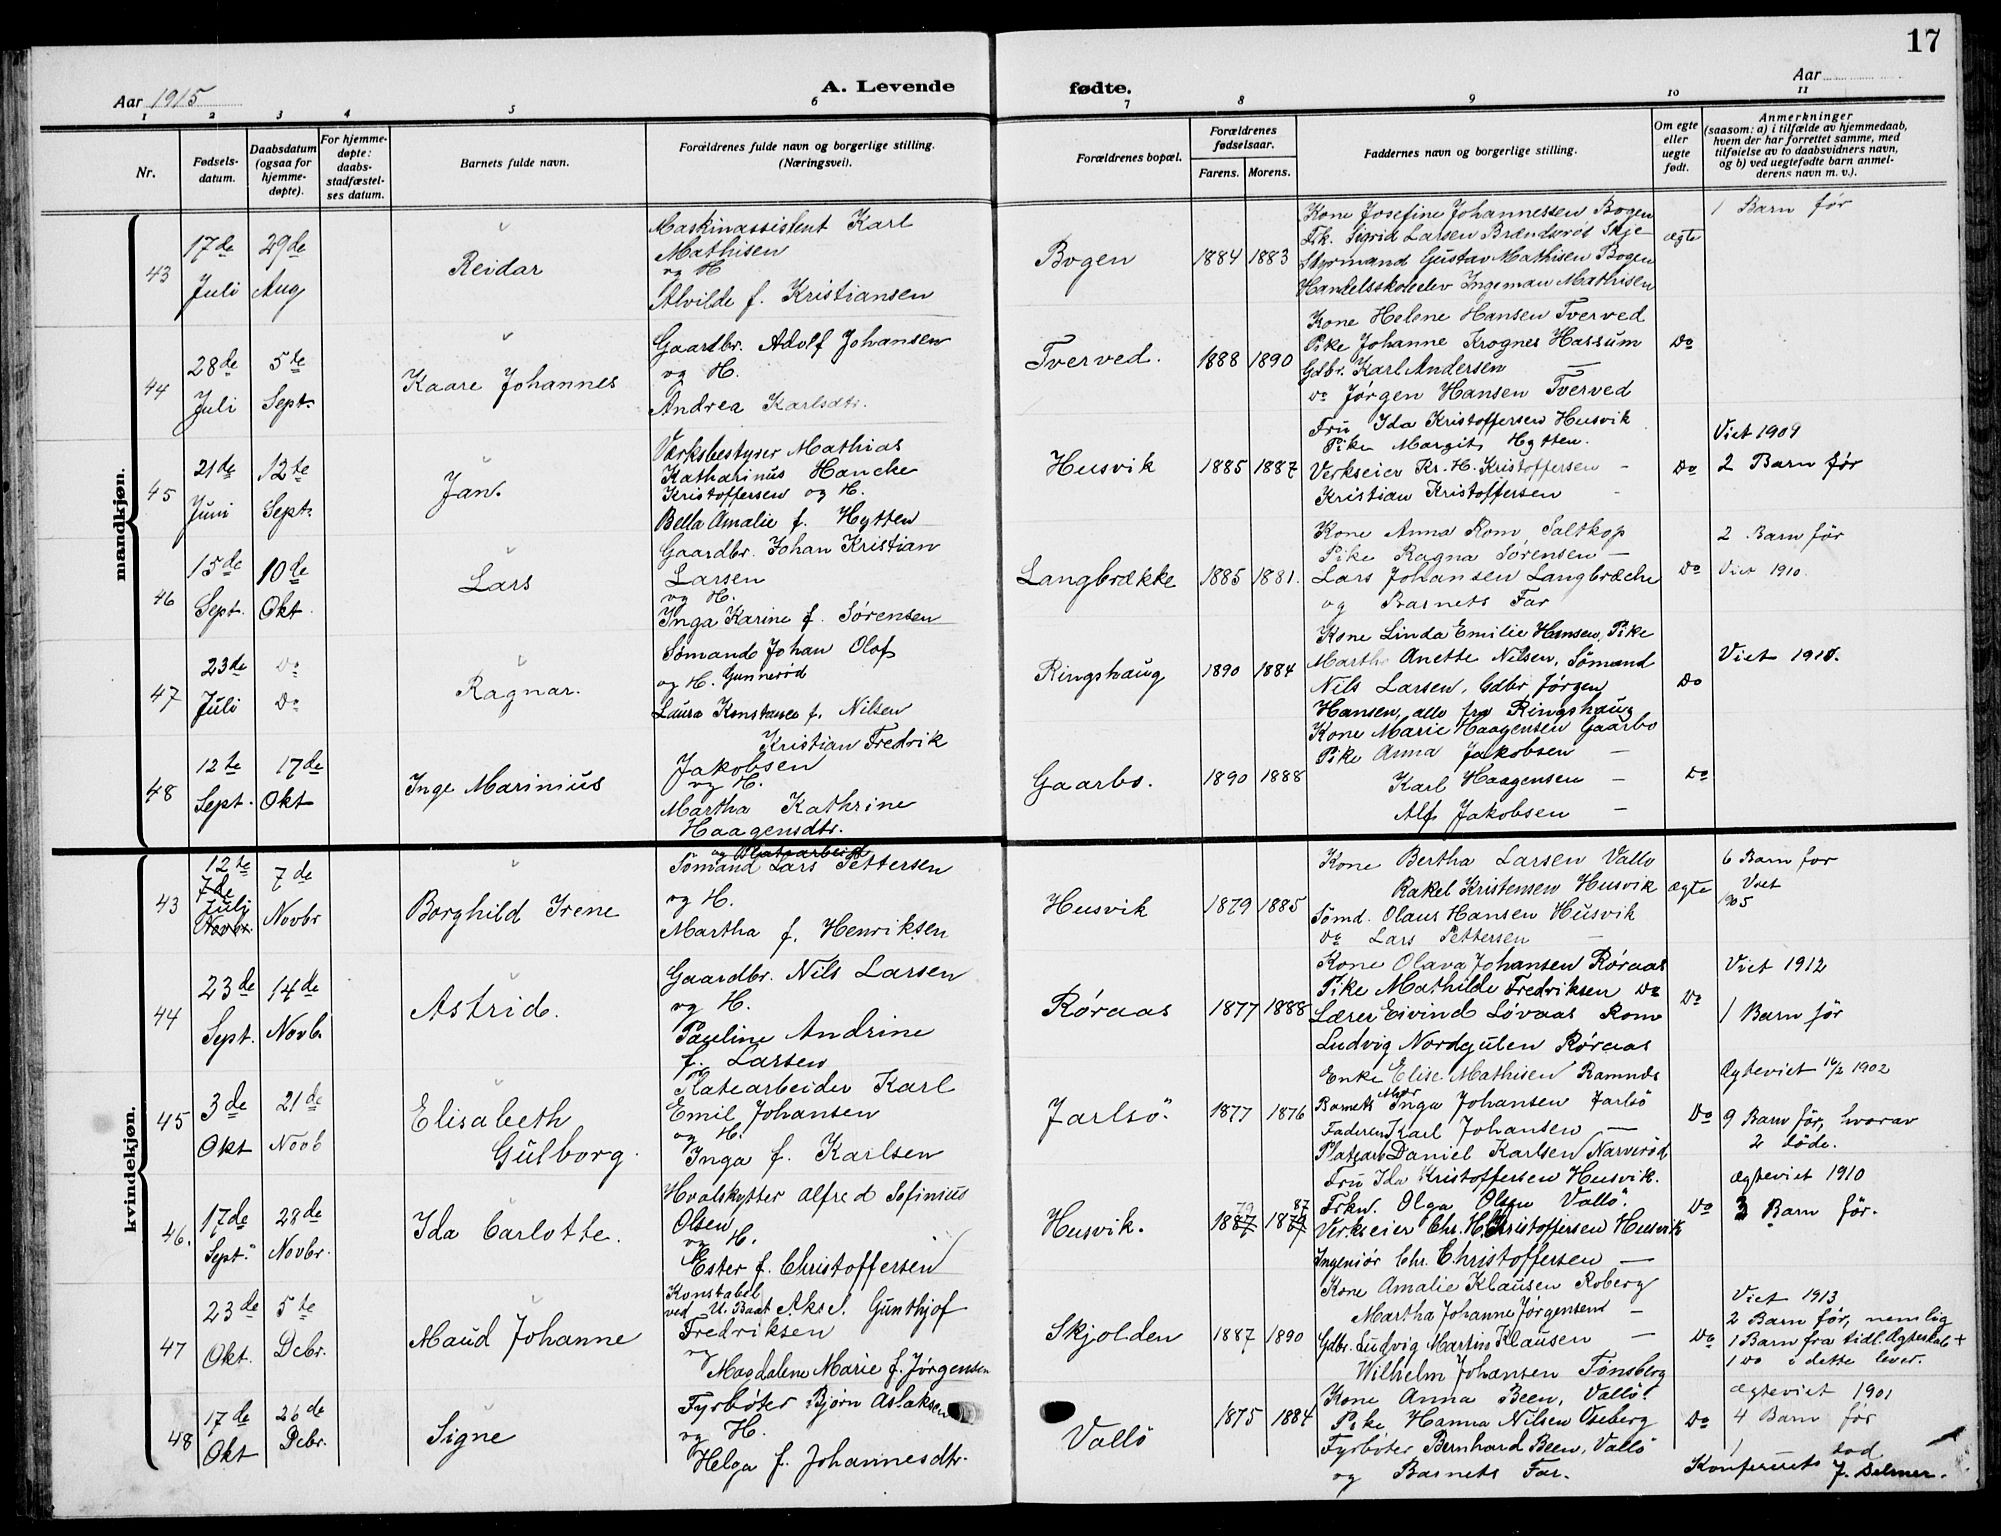 17
Aar 1915
A. Levende
fødte.
Aar
1 2 3 4 5 6 7 8 9 10 11
Nr.
Fødsels-
datum.
Daabsdatum
(ogsaa for
hjemme-
døpte).
For hjemme-
døpte:
daabs-
stadfæstel-
ses datum.
Barnets fulde navn.
Forældrenes fulde navn og borgerlige stilling.
(Næringsvei).
Forældrenes bopæl.
Forældrenes
fødselsaar.
Farens. Morens.
Faddernes navn og borgerlige stilling.
Om egte
eller
uegte
født.
Anmerkninger
(saasom: a) i tilfælde av hjemmedaab,
hvem der har forrettet samme, med
tilføielse av to daabsvidners navn,
og b) ved uegtefødte barn anmel-
derens navn m. v.).
mandkjøn.
43
17de
Juli
29de
Aug
Reidar
Maskinassistent Karl
Mathisen
og H
Alvilde f. Kristiansen
Bogen
1884 1883
Kone Josefine Johannessen Bogen
Frk. Sigrid Larsen Brændsrøs Skje
Styrmand Gustav Mathisen Bogen
Handelsskoleelev Ingeman Mathisen
ægte
1 Barn før
44
28de
Juli
5te
Sept.
Kaare Johannes
Gaardbr. Adolf Johansen
og H.
Andrea Karlsdtr.
Tverved.
1888 1890
Kone Helene Hansen Tverved
Pike Johanne Krognes Hassum
Gdbr. Karl Andersen —
do Jørgen Hansen Tverved
Do
45
21de
Juni
12te
Sept.
Jan.
Værksbestyrer Mathias
Katharinus Hanche
Kristoffersen og H.
Bella Amalie f. Hytten
Husvik
1885 1887
Fru Ida Kristoffersen Husvik
Pike Margit Hytten.
Verkseier Kr. H. Kristoffersen -
Kristian Kristoffersen -
Do
Viet 1909
2 Barn før
46
15de
Sept.
10de
Okt.
Lars
Gaardbr. Johan Kristian
Larsen
og H.
Inga Karine f. Sørensen
Langbrække
1885 1881.
Kone Anna Rom, Saltkop
Pike Ragna Sørensen —
Lars Johansen Langbræche
og Barnets Far
Do
2 Barn før
Viet 1910.
47
23de
Juli
Do
Do
Ragnar.
Sømand Johan Olof
og H. Gunnerød
Laura Konstance f. Nilsen
Ringshaug
1890 1884
Kone Linda Emilie Hansen, Pike
Marthe Anette Nilsen, Sømand
Nils Larsen, Gdbr Jørgen
Hansen, alle fra Ringshaug
Do
Viet 1910.
48
12te
Sept.
17de
Okt
Inge Marinius
Kristian Fredrik
Jakobsen
og H.
Martha Kathrine
Haagensdtr.
Gaarbo.
1890 1888
Kone Marie Haagensen Gaarbo
Pike Anna Jakobsen —
Karl Haagensen —
Alf Jakobsen —
Do
kvindekjøn.
43
12te
7de
Juli
Novbr.
7de
Novbr
Borghild Irene
og Platearbeid
Sømand Lars Pettersen
og H.
Martha f. Henriksen
Husvik
1879 1885
Kone Bertha Larsen Vallø
Rakel Kristensen Husvik
Sømd. Olaus Hansen Husvik
do Lars Pettersen —
ægte
6 Barn før
Viet
1905
44
23de
Sept.
14de
Novb.
Astrid.
Gaardbr. Nils Larsen
og H.
Pauline Andrine
f. Larsen
Røraas
1877 1888
Kone Olava Johansen Røraas
Pike Mathilde Fredriksen Do
Lærer Eivind Løvaas Rom
Ludvig Nordgulen Røraas
Do
Viet 1912
1 Barn før
45
3de
Okt
21de
Novb
Elisabeth
Gulborg.
Platearbeider Karl
Emil Johansen
og H.
Inga f. Karlsen
Jarlsö.
1877 1876
Enke Elise Mathisen Ramnds
Barnets Mor Inga Johansen Jarlsö
Faderen Karl Johansen —
Platearb Daniel Karlsen Narverød
Do
Ægteviet 16/2 1902
9 Barn før, hvorav
2 døde.
46.
17de
Sept.
28de
Novbr.
Ida Carlotte.
Hvalskytter Alfred Sofinius
Olsen
og H.
Ester f. Christoffersen
Husvik.
79 87
1887 1879
Fru Ida Kristoffersen Husvik.
Frkn. Olga Olsen Vallö.
Verkseier Chr. H. Christoffersen Husvik
Ingeniør Chr. Christoffersen —
Do
Ægteviet 1910
3 Barn før.
47
23de
Okt.
5te
Debr.
Maud Johanne
Konstabel
ved U. Baat Aksel Gunthjof
Fredriksen
og
Magdalene Marie f. Jørgensen
Skjolden
1887 1890
Kone Amalie Klausen Roberg
Martha Johanne Jørgensen —
Gdbr. Ludvig Martin Klausen —
Wilhelm Johansen Tønsberg
Do
Viet 1913
2 Barn før, nemlig
1 Barn fra tidl. Ægteskab +
1 do i dette lever.
48
17de
Okt
26de
Debr.
Signe
Fyrbøter Bjørn Aslaksen
og H.
Helga f. Johannesdtr.
Vallö
1875 1884
Kone Anna Been, Vallö
Pike Hanna Nilsen Oseberg
Fyrbøter Bernhard Been, Vallö
og Barnets Far.
Do
Ægteviet 1901
4 Barn før
Konfereret